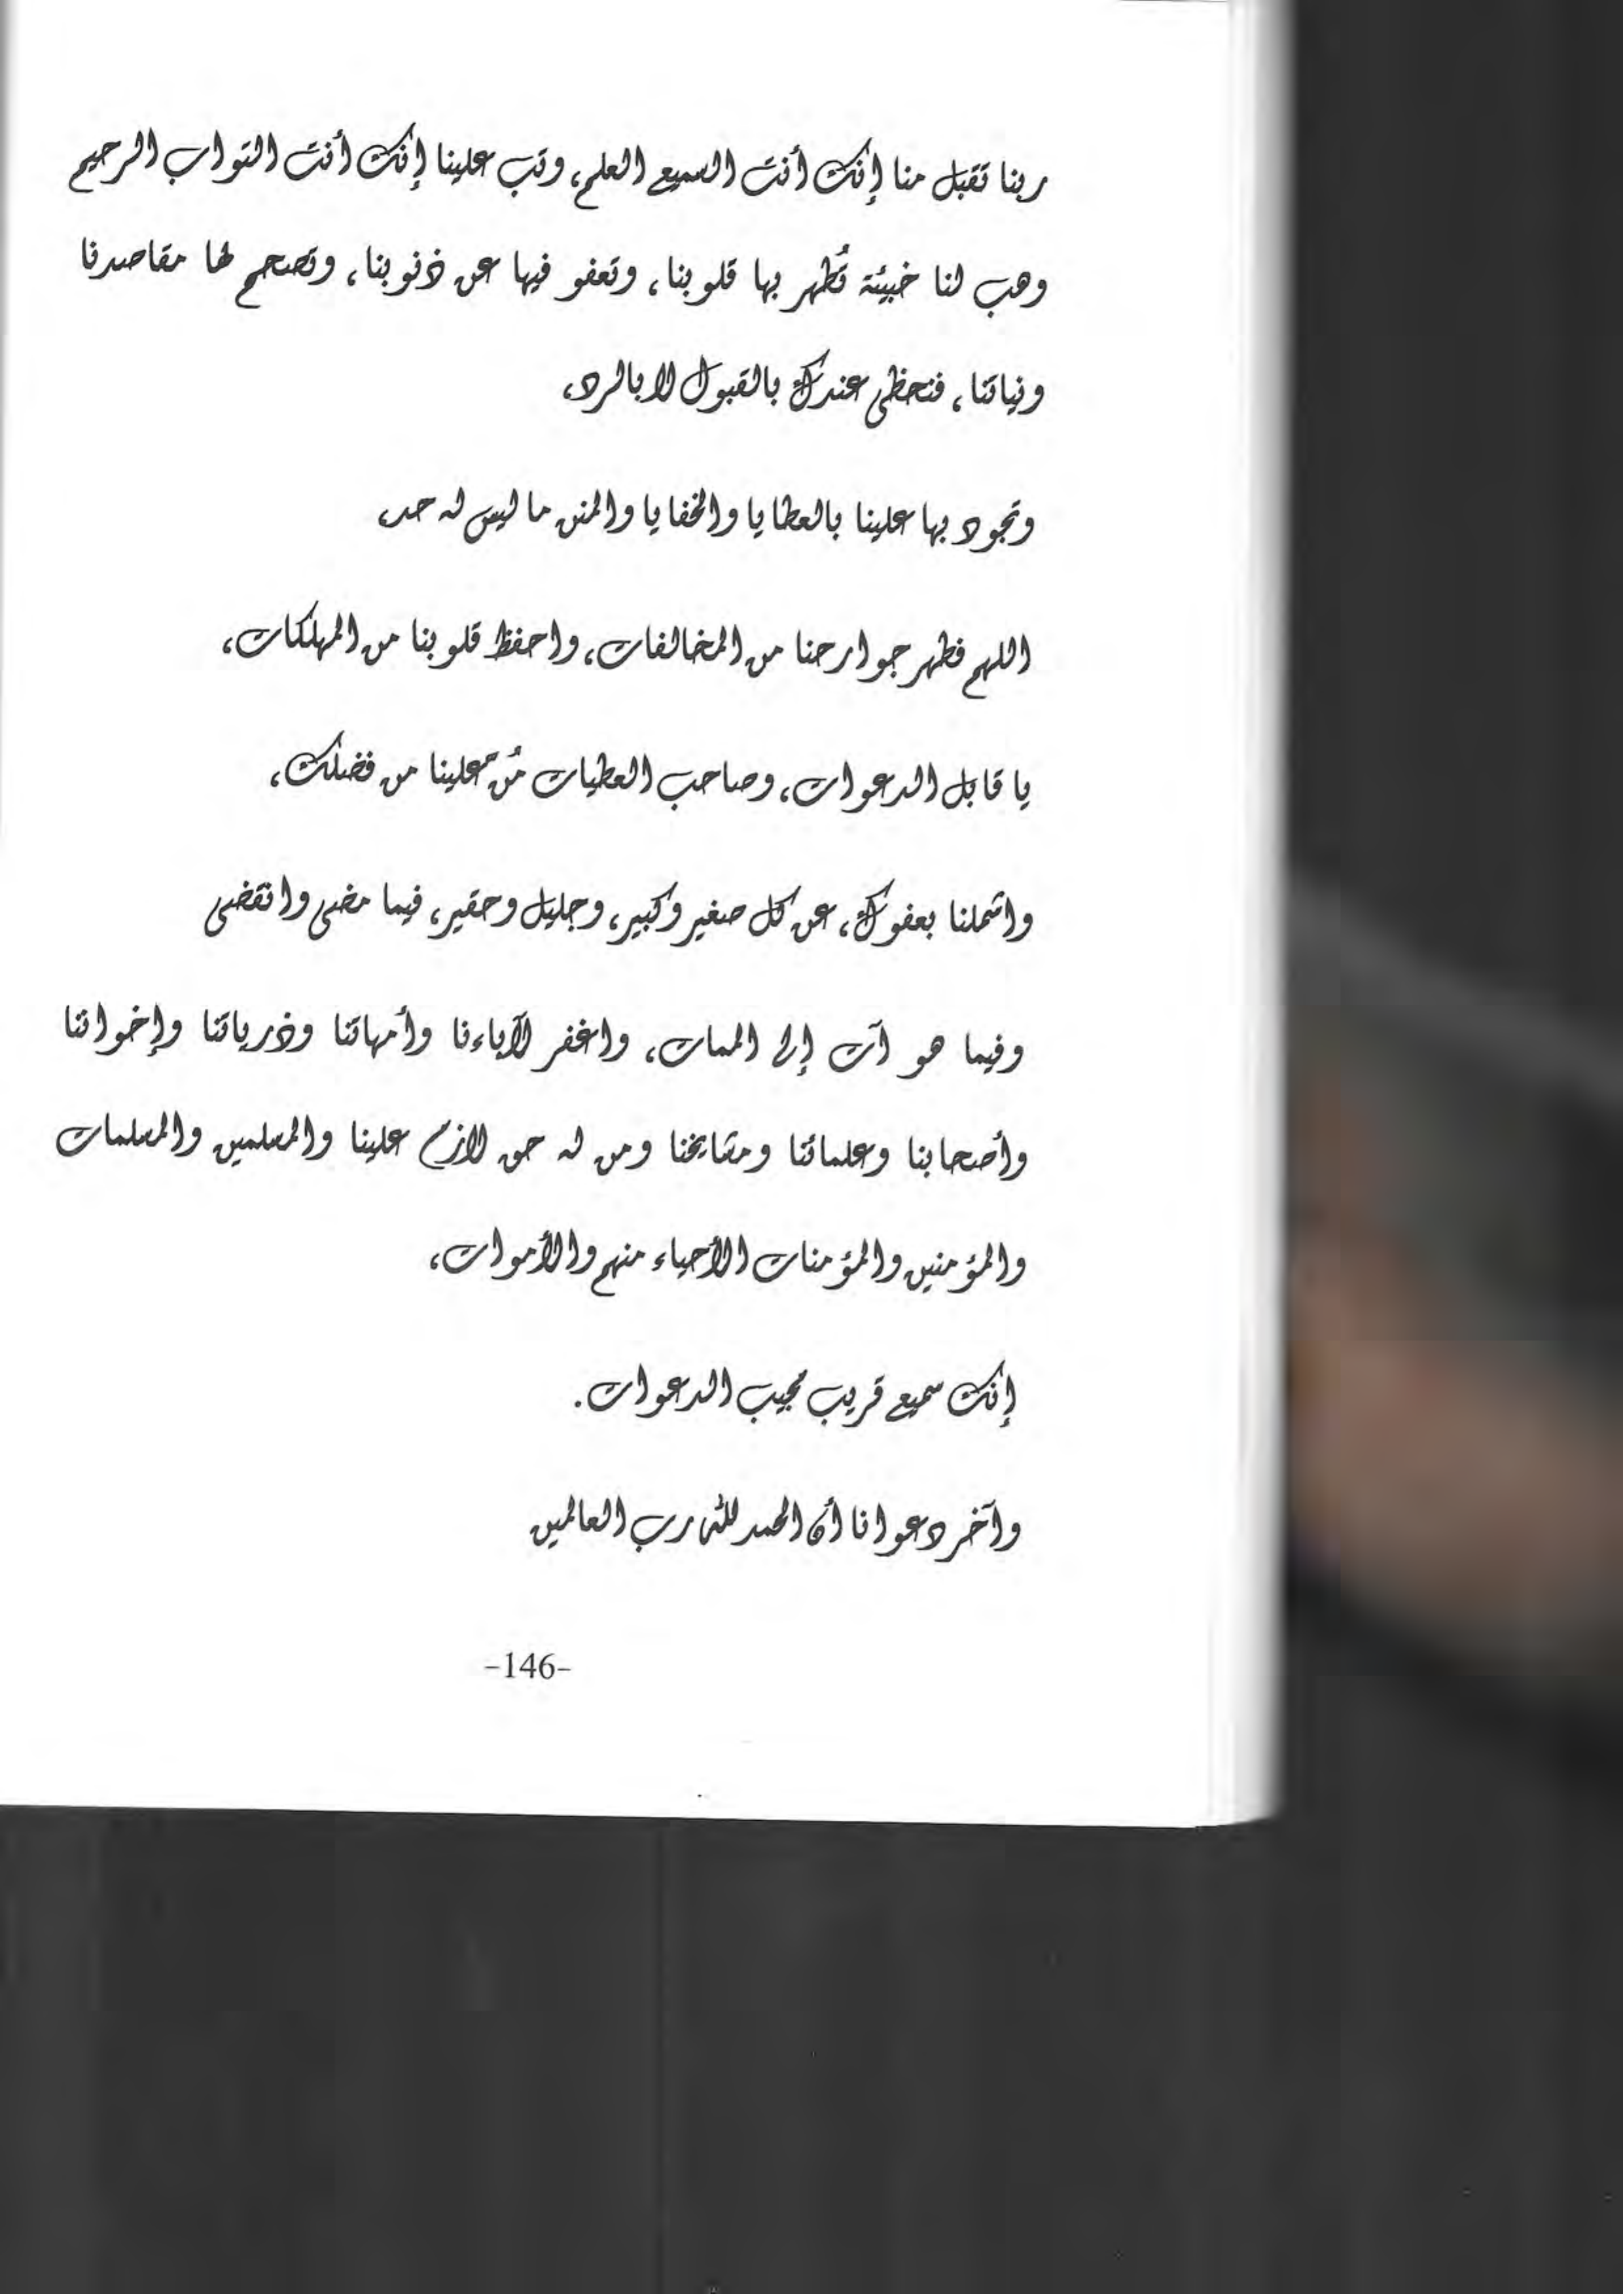 ربنا تقبل منا إنك أنت السميع العلم، وتب علينا إنك أنت التواب الرحيم
وهب لنا خبيئة تُطهر بها قلوبنا، وتعفو فيها عن ذنوبنا، وتصحح لها مقاصدنا
ونياتنا، فنحظى عندك بالقبول لا بالرد،
وتجود بها علينا بالعطايا والخفايا والمنن ما ليس له حد،
اللهم فطهر جوارحنا من المخالفات، واحفظ قلوبنا من المهلكات،
يا قابل الدعوات، وصاحب العطيات مُنّ علينا من فضلك،
واشملنا بعفوك، عن كل صغير وكبير، وجليل وحقير، فيما مضى وانقضى
وفيما هو آت إلى الممات، واغفر لآباءنا وأمهاتنا وذرياتنا وإخواننا
وأصحابنا وعلمائنا ومشايخنا ومن له حق لازم علينا والمسلمين والمسلمات
والمؤمنين والمؤمنات الأحياء منهم والأموات،
إنك سميع قريب مجيب الدعوات.
وآخر دعوانا أن الحمد لله رب العالمين
-146-